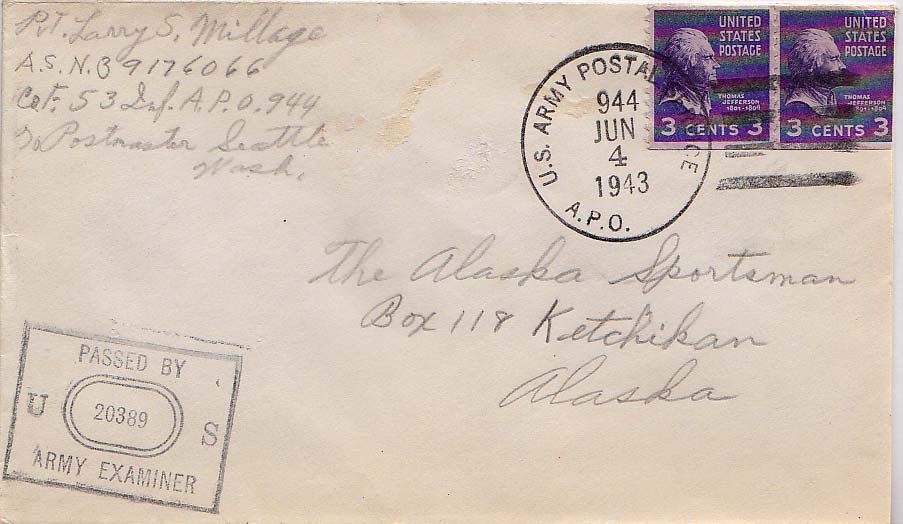 Pvt. Larry S. Millage
A.S.N. 39176066
Co F. 53 Inf. A.P.O. 944
℅ Postmaster Seattle
Wash.
U.S. ARMY POSTAL
944
JUN
4
1943
A.P.O.
UNITED
STATES
POSTAGE
THOMAS
JEFFERSON
1801-1809
3 CENTS 3
UNITED
STATES
POSTAGE
THOMAS
JEFFERSON
1801-1809
3 CENTS 3
The Alaska Sportsman
Box 118 Ketchikan
Alaska
PASSED BY
U 20389 S
ARMY EXAMINER